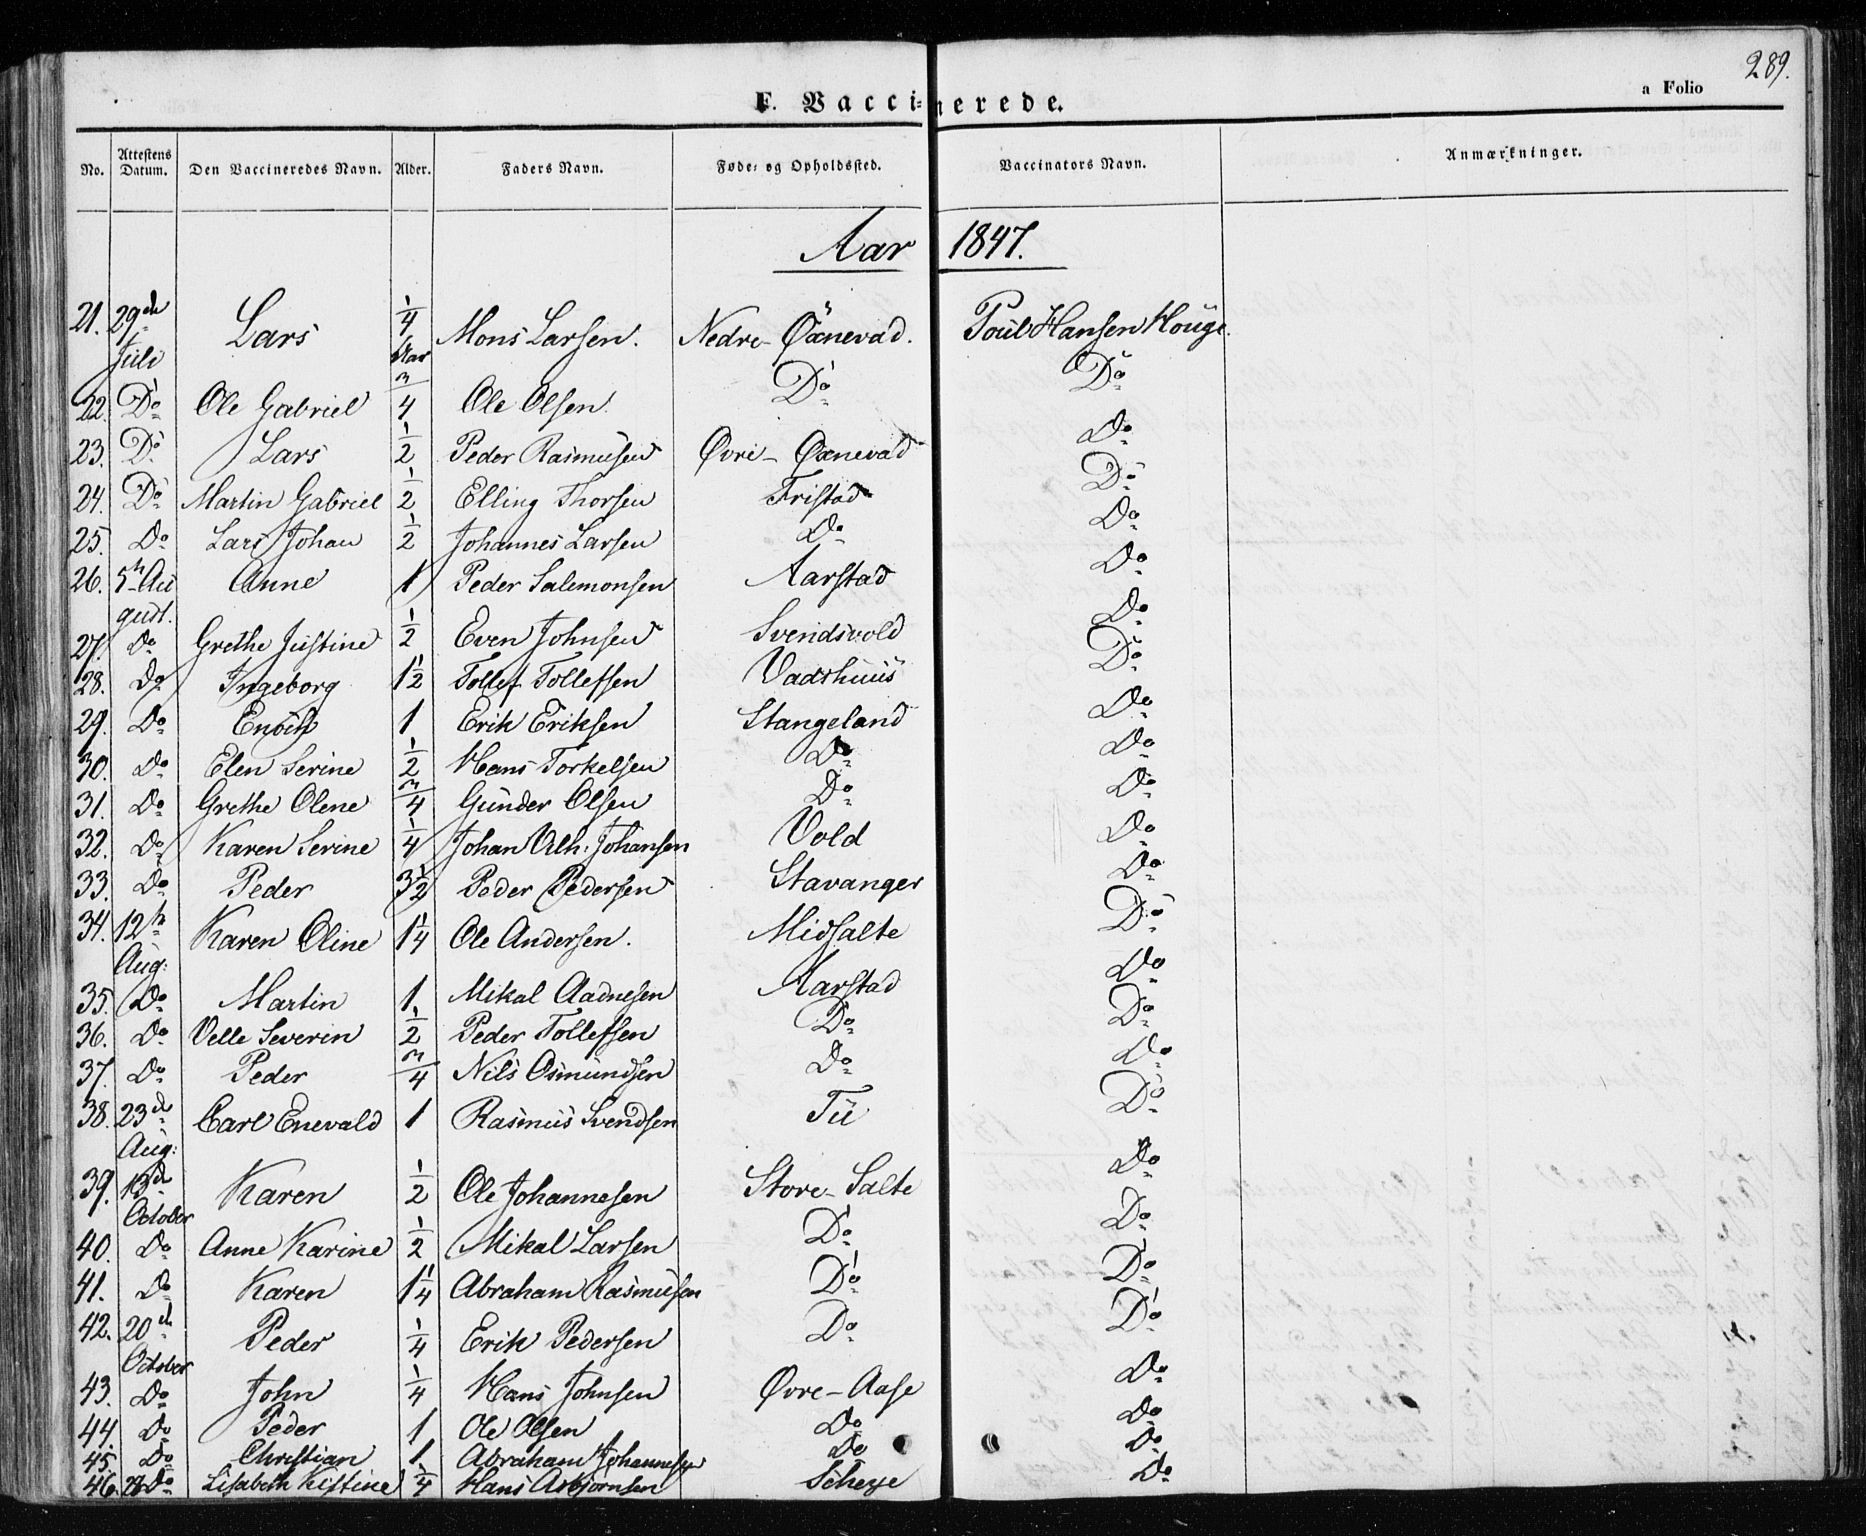 289.
F. Vaccinerede.
a Folio
No. Attestens Datum. Den Vaccineredes Navn. Alder. Faders Navn. Føde- og Opholdssted. Vaccinators Navn. Anmærkninger.
Aar 1847.
21. 29de Juli Lars 1/4 Aar Mons Larsen. Nedre-Öxnevad. Poul Hansen Houge.
22. Do Ole Gabriel 3/4 Ole Olsen. Do Do
23. Do Lars 1/2 Peder Rasmusen Øvre-Öxnevad Do
24. Do Martin Gabriel 1/2 Elling Thorsen Fristad Do
25. Do Lars Johan 1/2 Johannes Larsen Do Do
26. 5te August. Anne 1 Peder Salomonsen Aarstad Do
27. Do Grethe Justine 1/2 Even Johnsen Svendsvold Do
28. Do Ingeborg 1 1/2 Tollef Tollefsen Vadshuus Do
29. Do Enoch 1 Erik Eriksen Stangeland Do
30. Do Elen Serine 1/2 Hans Torkelsen Do Do
31. Do Grethe Olene 3/4 Gunder Olsen Do Do
32. Do Karen Serine 1/4 Johan Vilh. Johansen Vold Do
33. Do Peder 3 1/2 Peder Pedersen Stavanger Do
34. 12te Aug: Karen Oline 1 1/4 Ole Andersen. Midsalte Do
35. Do Martin 1 Mikal Aadnesen Aarstad Do
36. Do Velle Severin 1/2 Peder Tollefsen Do Do
37. Do Peder 3/4 Nils Osmundsen Do Do
38. 23de Aug: Carl Enevald 1 Rasmus Svendsen Tu Do
39. 13de October Karen 1/2 Ole Johannesen Store-Salte Do
40. Do Anne Karine 1/2 Mikal Larsen Do Do
41. Do Karen 1 1/4 Abraham Rasmusen Do Do
42. 20de October Peder 1/4 Erik Pedersen Do Do
43. Do John 1/4 Hans Johnsen Øvre-Aase Do
44. Do Peder 1 Ole Olsen Do Do
45. Do Christian 1 Abraham Johannesen Do Do
46. Do Lisabeth Kistine 1/4 Hans Asbjørnsen Do